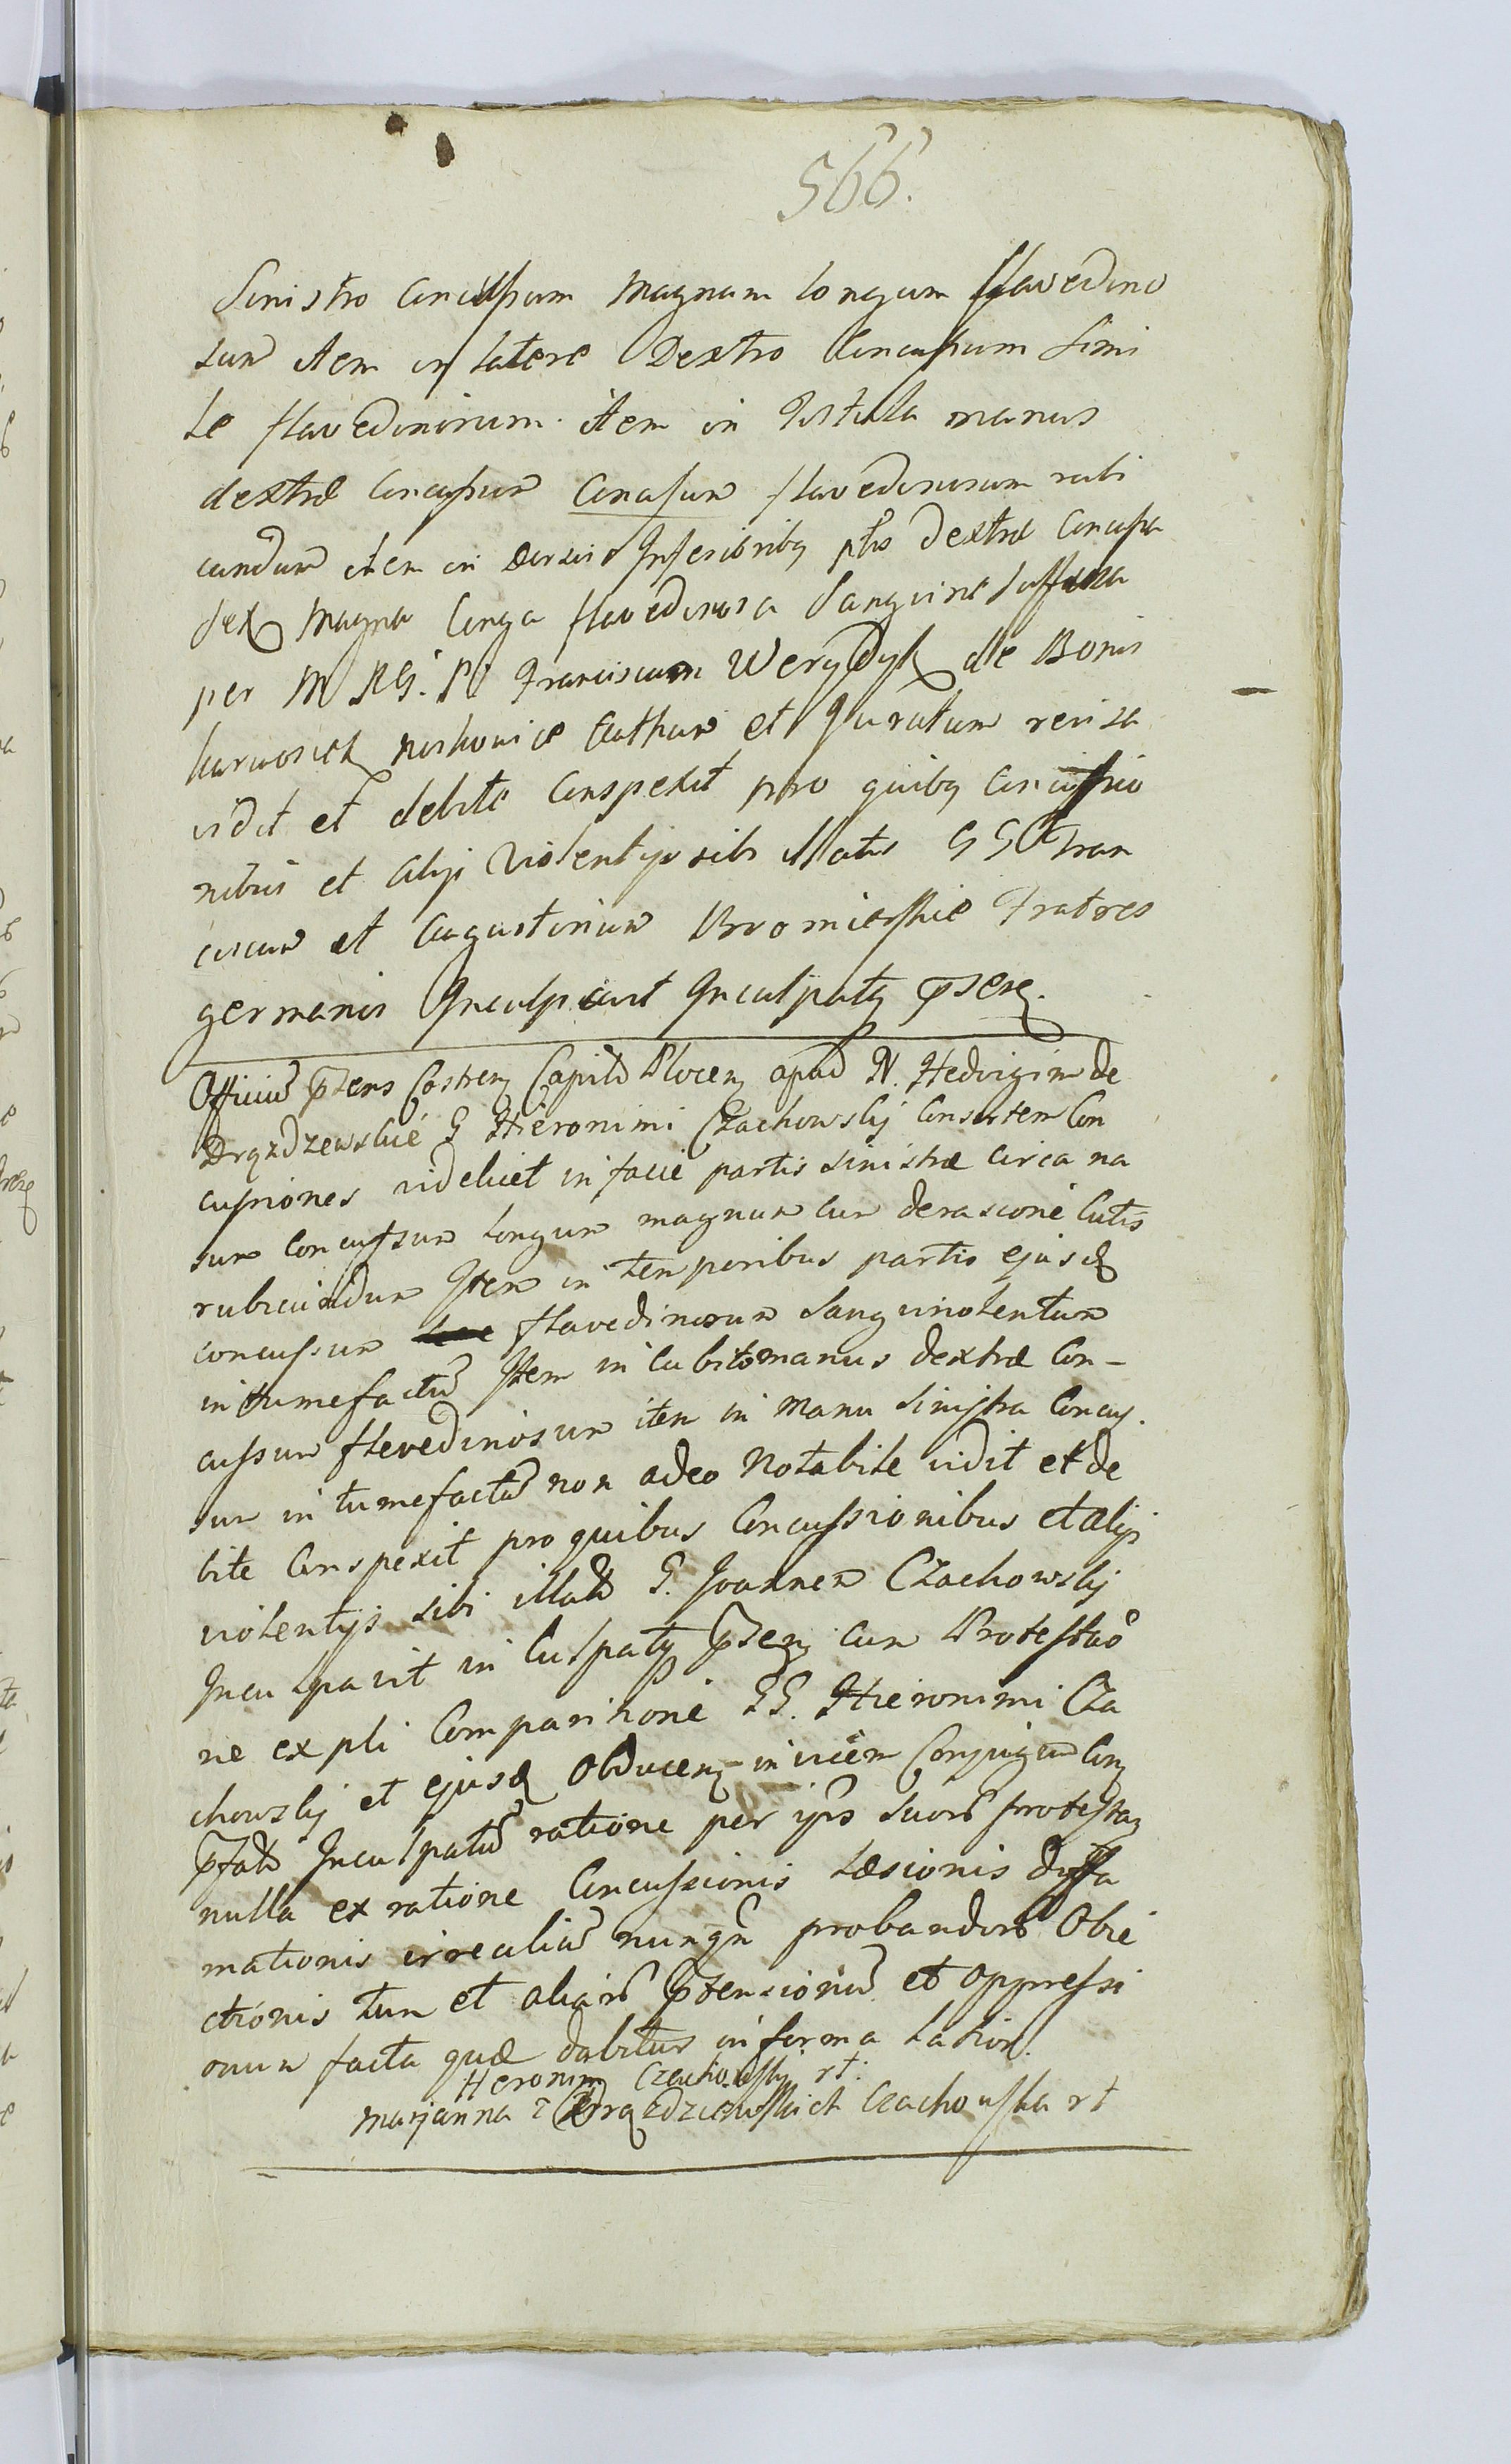 566.
Sinistro Concussum magnum longum flavedino
sum item in latere Dextro Concussum simi
le flavedinosum. item in Pistula manus
dextræ Concussum Concussum flavedinosum rubi
cundum item in Inferioribq ptis dextræ Concussa
sex magna longa flavedinosa Sanguine suffusa
per M RG. P: Franciscum Werydyk de Bonis
et Juratum revisa
vidit et debite Conspexit pro quibq Concussio
nibus et alijs violentijs sibi illatis GG Fran
ciscum et Augustinum Bromierskie Fratres
germanis Inculpavit Inculpatq pñserq.
Officiũ pñens Castren Capitã Plocen apud N. Hedvigim de
Drązdzewskie G Hieronimi Czachowskij Consortem Con
cussiones videlicet in facie partis sinistræ circa na
sum concussum longum magnum cum derasione Cutis
rubicundum Item in temporibus partis ejusd
concussum flavedinosum Sanguinolentum
intumefactũ Item in Cubito manus dextræ Con-
cussum flevedinosum item in manu Sinistra Concus.
sum in tumefactũ non adeo Notabile vidit et de
bite Conspexit pro quibus Concussionibus et alijs
violentijs sibi illatis G. Joannem Czachowskij
Inculpavit in Culpatq pñsenq cum Protestaõ
ne ex pli Comparitione GG. Hieronimi Cza
chowskij et ejusd Obducenq in vicem Conjugum Conq
pñfatũ Inculpatũ ratione per ipõs suorũ protestaq
nulla ex ratione Concussionis læsionis diffa
mationis irrealiũ nunqñ probandorũ Obie
ctionis tum et aliarũ pñtensionũ et oppressi
onum facta quæ dabitur in forma lation:
Heronim Czachowskij rt:
Marjanna z Drązdziewskich Czachowska rt